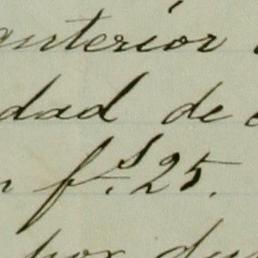 anterior
dad de
f.s 25.
por